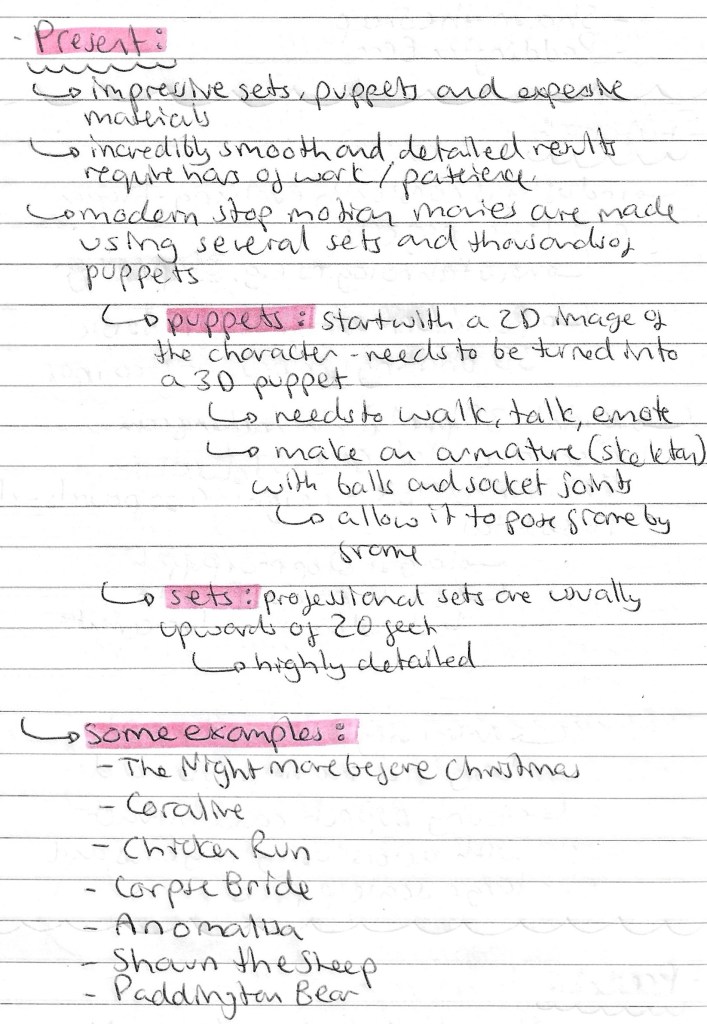 - Present:
↳ impressive sets, puppets and expensive
materials
↳ incredibly smooth and detailed results
require hours of work / patience.
↳ modern stop motion movies are made
using several sets and thousands of
puppets
↳ puppets: start with a 2D image of
the character - needs to be turned into
a 3D puppet
↳ needs to walk, talk, emote
↳ make an armature (skeleton)
with balls and socket joints
↳ allow it to pose frame by
frame
↳ sets: professional sets are usually
upwards of 20 feet
↳ highly detailed
↳ some examples:
- The Nightmare before Christmas
- Coraline
- Chicken Run
- Corpse Bride
- Anomalisa
- Shaun the Sheep
- Paddington Bear